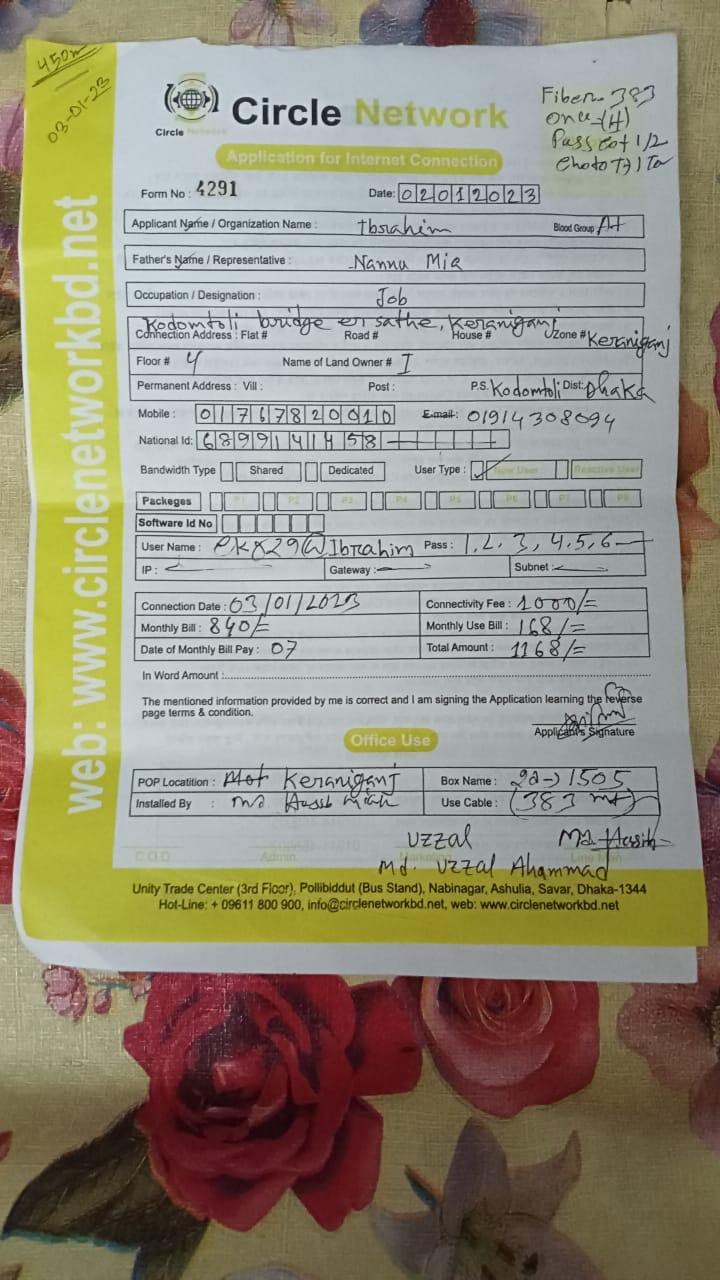 450m
03-01-23
Circle Network
Circle Network
Application for Internet Connection
Fiber 383
onu-(4)
Pass 1/2
Form No : 4291
Date: 02012023
Applicant Name / Organization Name : Ibrahim Blood Group A+
Father's Name / Representative : Nannu Mia
Occupation / Designation : Job
Kodomtoli bridge er sathe, Keraniganj
Connection Address : Flat # Road # House # Zone # Keraniganj
Floor # 4 Name of Land Owner # I
Permanent Address : Vill : Post : P.S. Kodomtoli Dist: Dhaka
Mobile : 01767820010 E-mail: 01914308094
National Id: 6899141458
Bandwidth Type Shared Dedicated User Type : New User Reactive User
Packeges P1 P2 P3 P4 P5 P6 P7 P8
Software Id No
User Name : @Ibrahim Pass : 1,2,3,4,5,6
IP : Gateway : Subnet :
Connection Date : 03/01/2023 Connectivity Fee : 1000/=
Monthly Bill : 840/= Monthly Use Bill : 168/=
Date of Monthly Bill Pay : 07 Total Amount : 1168/=
In Word Amount :
The mentioned information provided by me is correct and I am signing the Application learning the reverse
page terms & condition.
Applicant's Signature
Office Use
POP Locatition : Keraniganj Box Name : 1505
Installed By : Md Hassib Miah Use Cable : (383 mt)
Uzzal Md. Hassib
C O O Admin Marketing Line Man
Md. Uzzal Ahammad
Unity Trade Center (3rd Floor), Pollibiddut (Bus Stand), Nabinagar, Ashulia, Savar, Dhaka-1344
Hot-Line: + 09611 800 900, info@circlenetworkbd.net, web: www.circlenetworkbd.net
web: www.circlenetworkbd.net